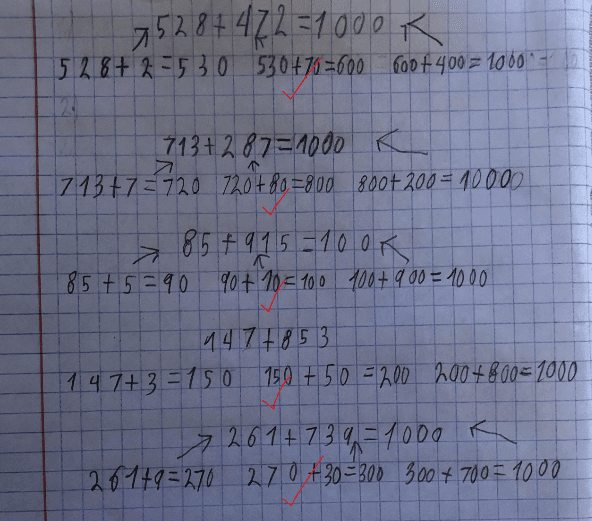 528+472=1000
528+2=530 530+70=600 600+400=1000
713+287=1000
713+7=720 720+80=800 800+200=10000
85+915=100
85+5=90 90+10=100 100+900=1000
147+853
147+3=150 150+50=200 200+800=1000
261+739=1000
261+9=270 270+30=300 300+700=1000